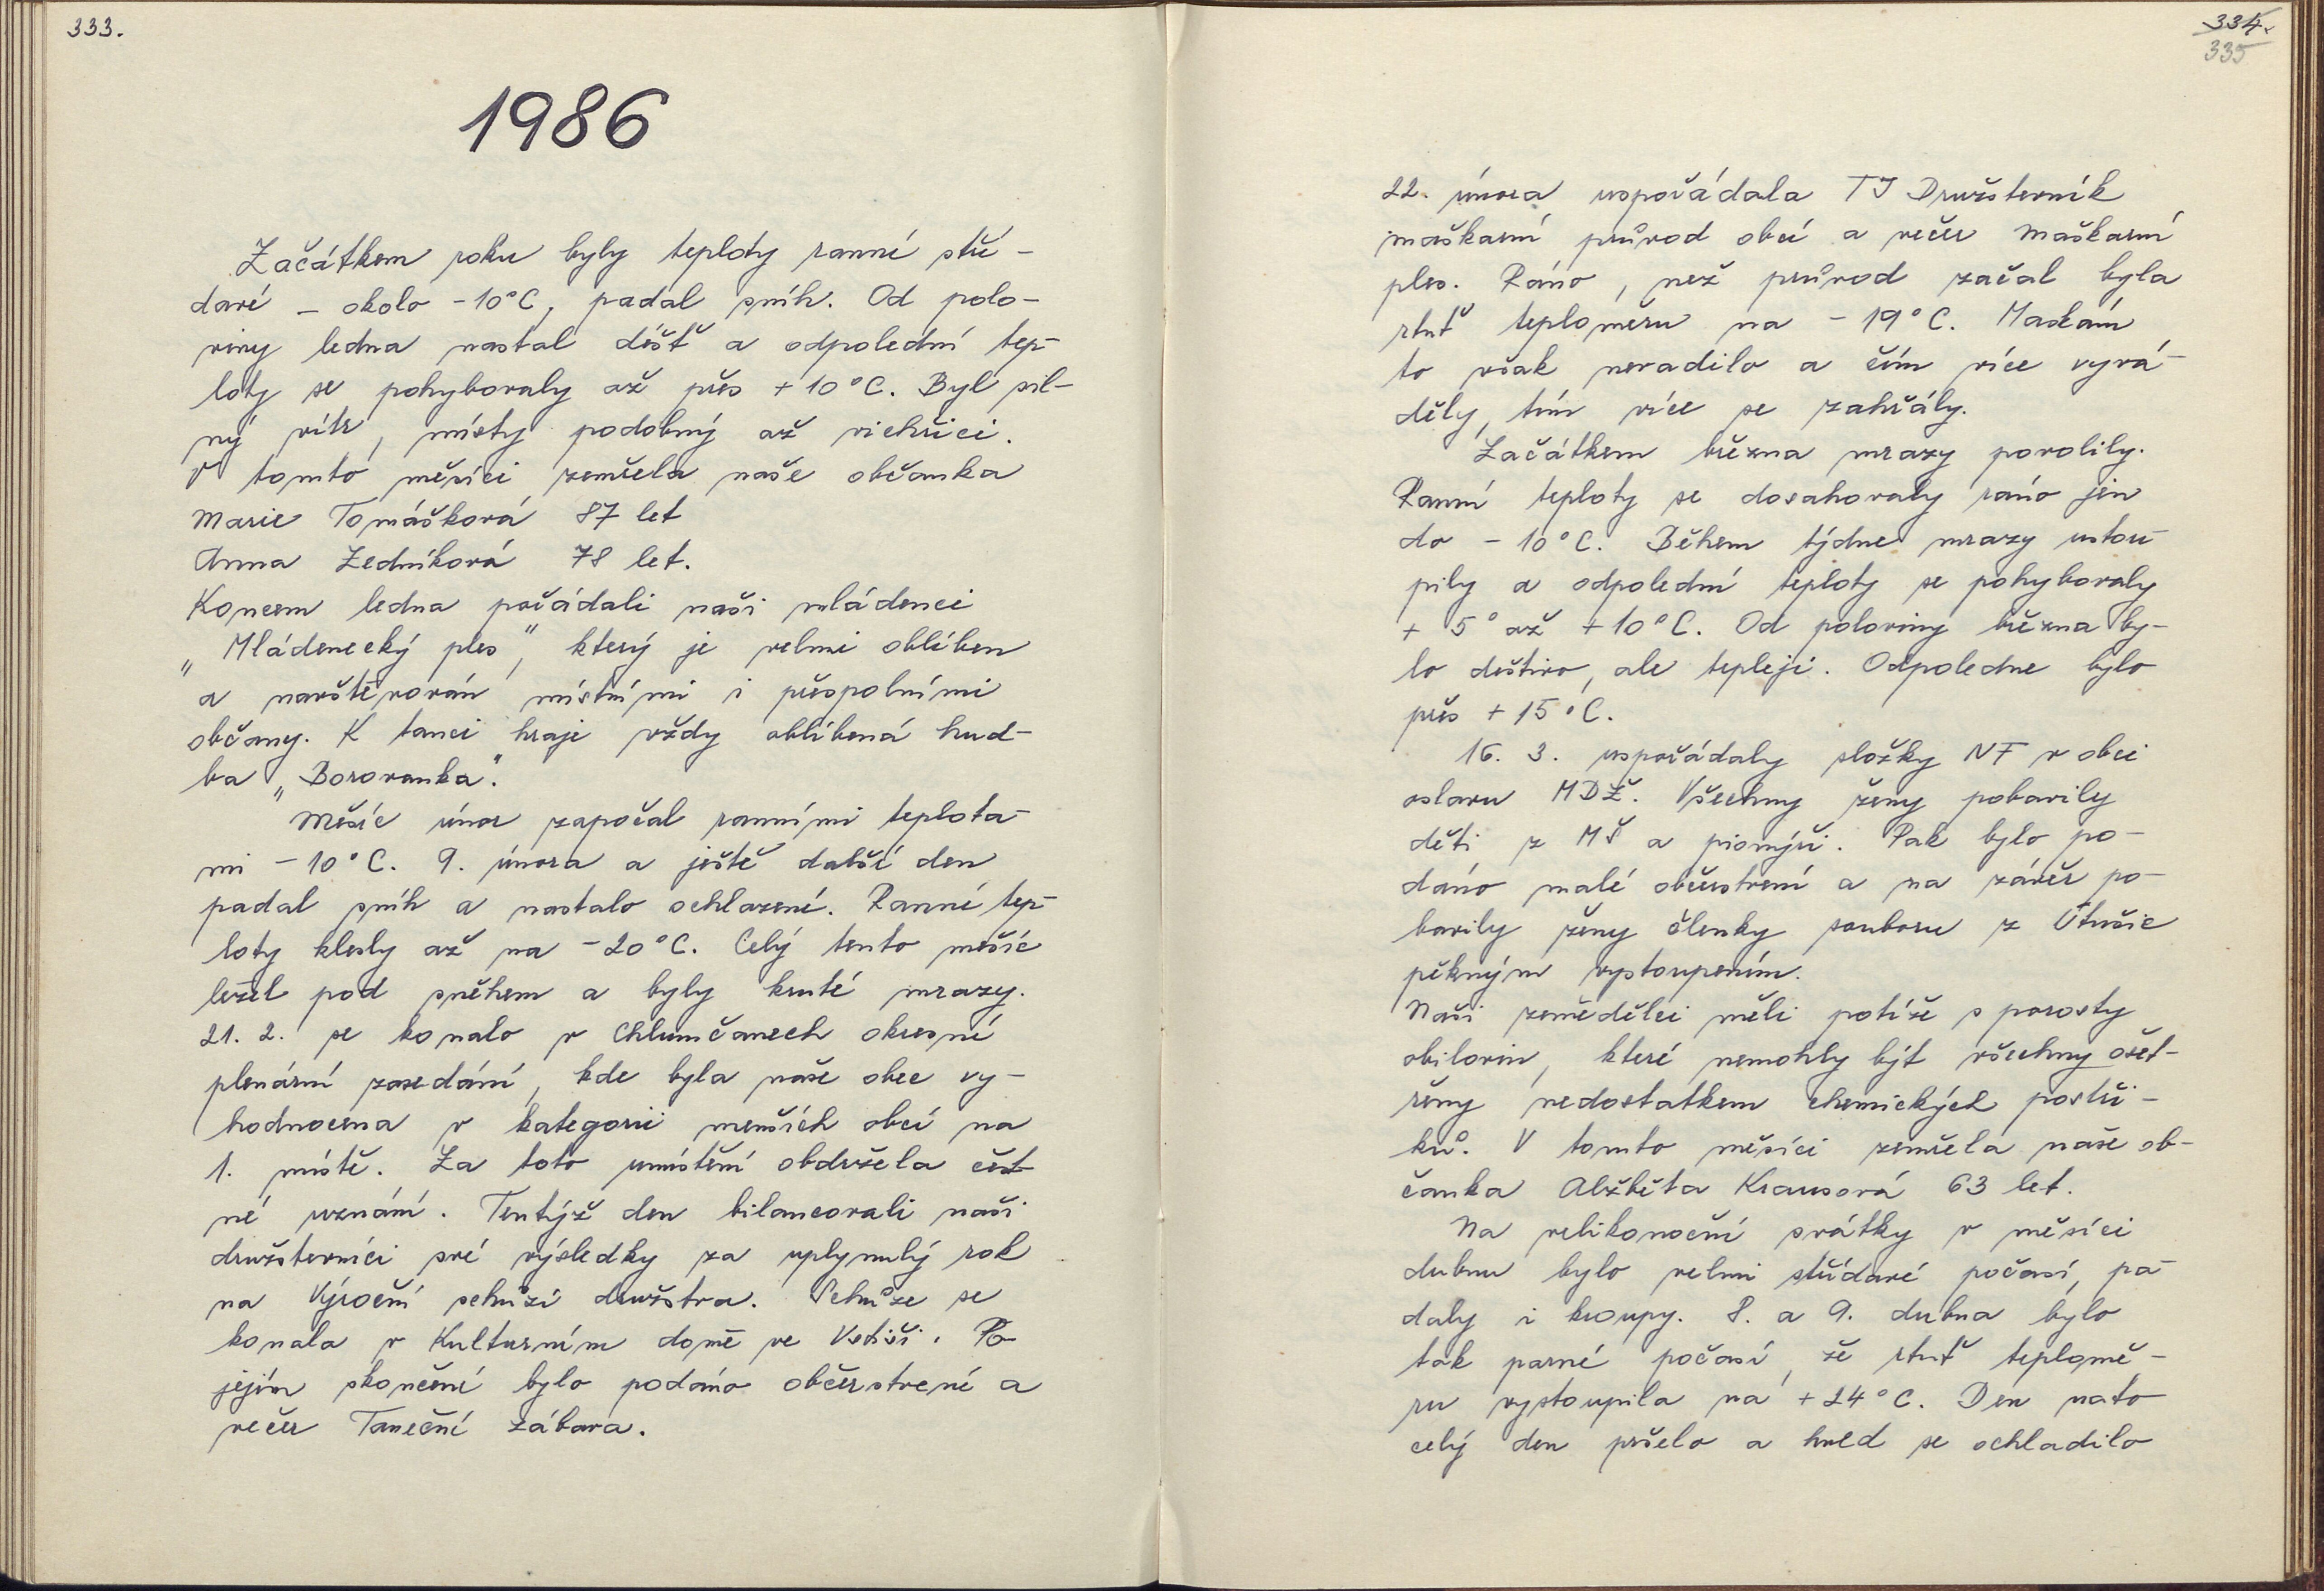 333.
1986
Začátkem roku byly teploty ranní stří-
davé - okolo -10°C, padal sníh. Od polo-
viny ledna nastal déšť a odpolední tep-
loty se pohybovaly až přes +10°C. Byl sil-
ný vítr, místy podobný až vichřici.
V tomto měsíci zemřela naše občanka
Marie Tomášková 87 let
Anna Zedníková 78 let.
Koncem ledna pořádali naši mládenci
„Mládenecký ples", který je velmi oblíben
a navštěvován místními i přespolními
občany. K tanci hraje vždy oblíbená hud-
ba „Borovanka".
Měsíc únor započal ranními teplota-
mi -10°C. 9. února a ještě další den
padal sníh a nastalo ochlazení. Ranní tep-
loty klesly až na -20°C. Celý tento měsíc
ležel pod sněhem a byly kruté mrazy.
21. 2. se konalo v Chlumčanech okresní
plenární zasedání, kde byla naše obec vy-
hodnocena v kategorii menších obcí na
1. místě. Za toto umístění obdržela čest-
né uznání. Tentýž den bilancovali naši
družstevníci své výsledky za uplynulý rok
na Výroční schůzi družstva. Schůze se
konala v Kulturním domě ve Vstiši. Po
jejím skončení bylo podáno občerstvení a
večer Taneční zábava.
334.
335
22. února uspořádala TJ Družstevník
maškarní průvod obcí a večer Maškarní
ples. Ráno, než průvod začal byla
rtuť teploměru na -19°C. Maskám
to však nevadilo a čím více vyvá-
děly, tím více se zahřály.
Začátkem března mrazy povolily.
Ranní teploty se dosahovaly ráno jen
do -10°C. Během týdne mrazy ustou-
pily a odpolední teploty se pohybovaly
+ 5° až +10°C. Od poloviny března by-
lo deštivo, ale tepleji. Odpoledne bylo
přes +15°C.
16. 3. uspořádaly složky NF v obci
oslavu MDŽ. Všechny ženy pobavily
děti z MŠ a pionýři. Pak bylo po-
dáno malé občerstvení a na závěr po-
bavily ženy členky souboru z Útušic
pěkným vystoupením.
Naši zemědělci měli potíže s porosty
obilovin, které nemohly být všechny ošet-
řeny nedostatkem chemických postři-
ků. V tomto měsíci zemřela naše ob-
čanka Alžběta Krausová 63 let.
Na velikonoční svátky v měsíci
dubnu bylo velmi střídavé počasí, pa-
daly i kroupy. 8. a 9. dubna bylo
tak parné počasí, že rtuť teplomě-
ru vystoupila na +24°C. Den nato
celý den pršelo a hned se ochladilo